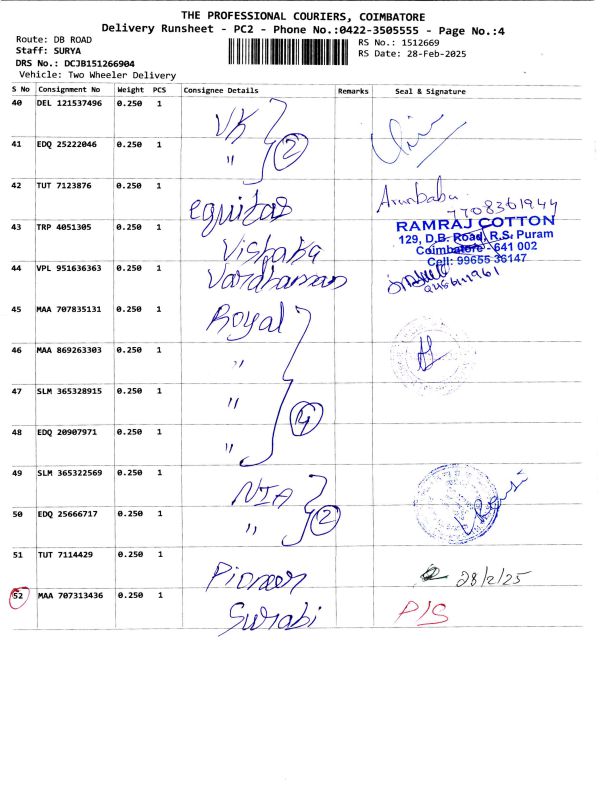 THE PROFESSIONAL COURIERS, COIMBATORE
Delivery Runsheet - PC2 - Phone No.:0422-3505555 - Page No.:4
Route: DB ROAD
Staff: SURYA
DRS No.: DCJB151266904
Vehicle: Two Wheeler Delivery
RS No.: 1512669
RS Date: 28-Feb-2025
S No Consignment No Weight PCS Consignee Details Remarks Seal & Signature
40 DEL 121537496 0.250 1 VK
41 EDQ 25222046 0.250 1 " 2
42 TUT 7123876 0.250 1 equitas Arunbabu 7708361944
43 TRP 4051305 0.250 1 Vishaka
RAMRAJ COTTON
129, D.B. Road, R.S. Puram
Coimbatore - 641 002
Cell: 99655 36147
44 VPL 951636363 0.250 1 Vardhaman
45 MAA 707835131 0.250 1 Royal
46 MAA 869263303 0.250 1 "
47 SLM 365328915 0.250 1 " 4
48 EDQ 20907971 0.250 1 "
49 SLM 365322569 0.250 1 NIA
50 EDQ 25666717 0.250 1 " 2
51 TUT 7114429 0.250 1 Pioneer 28/2/25
52 MAA 707313436 0.250 1 Surabi P/S